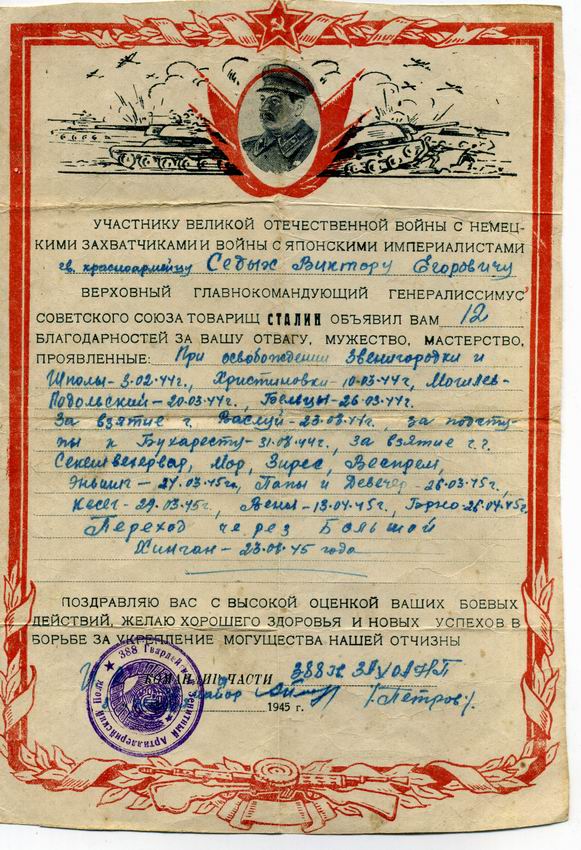 УЧАСТНИКУ ВЕЛИКОЙ ОТЕЧЕСТВЕННОЙ ВОЙНЫ С НЕМЕЦ-
КИМИ ЗАХВАТЧИКАМИ И ВОЙНЫ С ЯПОНСКИМИ ИМПЕРИАЛИСТАМИ
гв. красноармейцу Седых Виктору Егоровичу
ВЕРХОВНЫЙ ГЛАВНОКОМАНДУЮЩИЙ ГЕНЕРАЛИССИМУС
СОВЕТСКОГО СОЮЗА ТОВАРИЩ СТАЛИН ОБЪЯВИЛ ВАМ 12
БЛАГОДАРНОСТЕЙ ЗА ВАШУ ОТВАГУ, МУЖЕСТВО, МАСТЕРСТВО,
ПРОЯВЛЕННЫЕ: При освобождении Звенигородки и
Шполы-3.02.44г., Христиновки-10.03.44г, Могилев-
Подольский-20.03.44г., Бельцы-26.03.44г.
За взятие г. Васлуй-23.08.44г., за подсту-
пы к Бухаресту-31.08.44г., за взятие г.г.
Секешвехервар, Мор, Зирез, Веспрем,
Эньинг-24.03.45г., Папы и Девечер-26.03.45г.,
Кесег-29.03.45г., Вены-13.04.45г., 26.04.45г.
Переход через Большой
Хинган-23.08.45 года
ПОЗДРАВЛЯЮ ВАС С ВЫСОКОЙ ОЦЕНКОЙ ВАШИХ БОЕВЫХ
ДЕЙСТВИЙ, ЖЕЛАЮ ХОРОШЕГО ЗДОРОВЬЯ И НОВЫХ УСПЕХОВ В
БОРЬБЕ ЗА УКРЕПЛЕНИЕ МОГУЩЕСТВА НАШЕЙ ОТЧИЗНЫ
КОМАНДИР ЧАСТИ 388
1945 г. /Петров/.
388 Гвардейский Зенитный Артиллерийский Полк